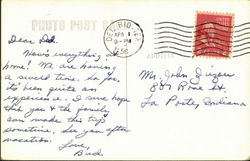 PHOTO POST CARD
DEL RIO, TEX.
APR 1
9-PM
1956
Dear Dad,
How's everything at
home! We are having
a swell time. So far,
it's been quite an
experience. I sure hope
that you & the family
can make this trip
sometime. See you after
vacation.
Love,
Bud
Mr. John
807 Rose St.
La Porte, Indiana